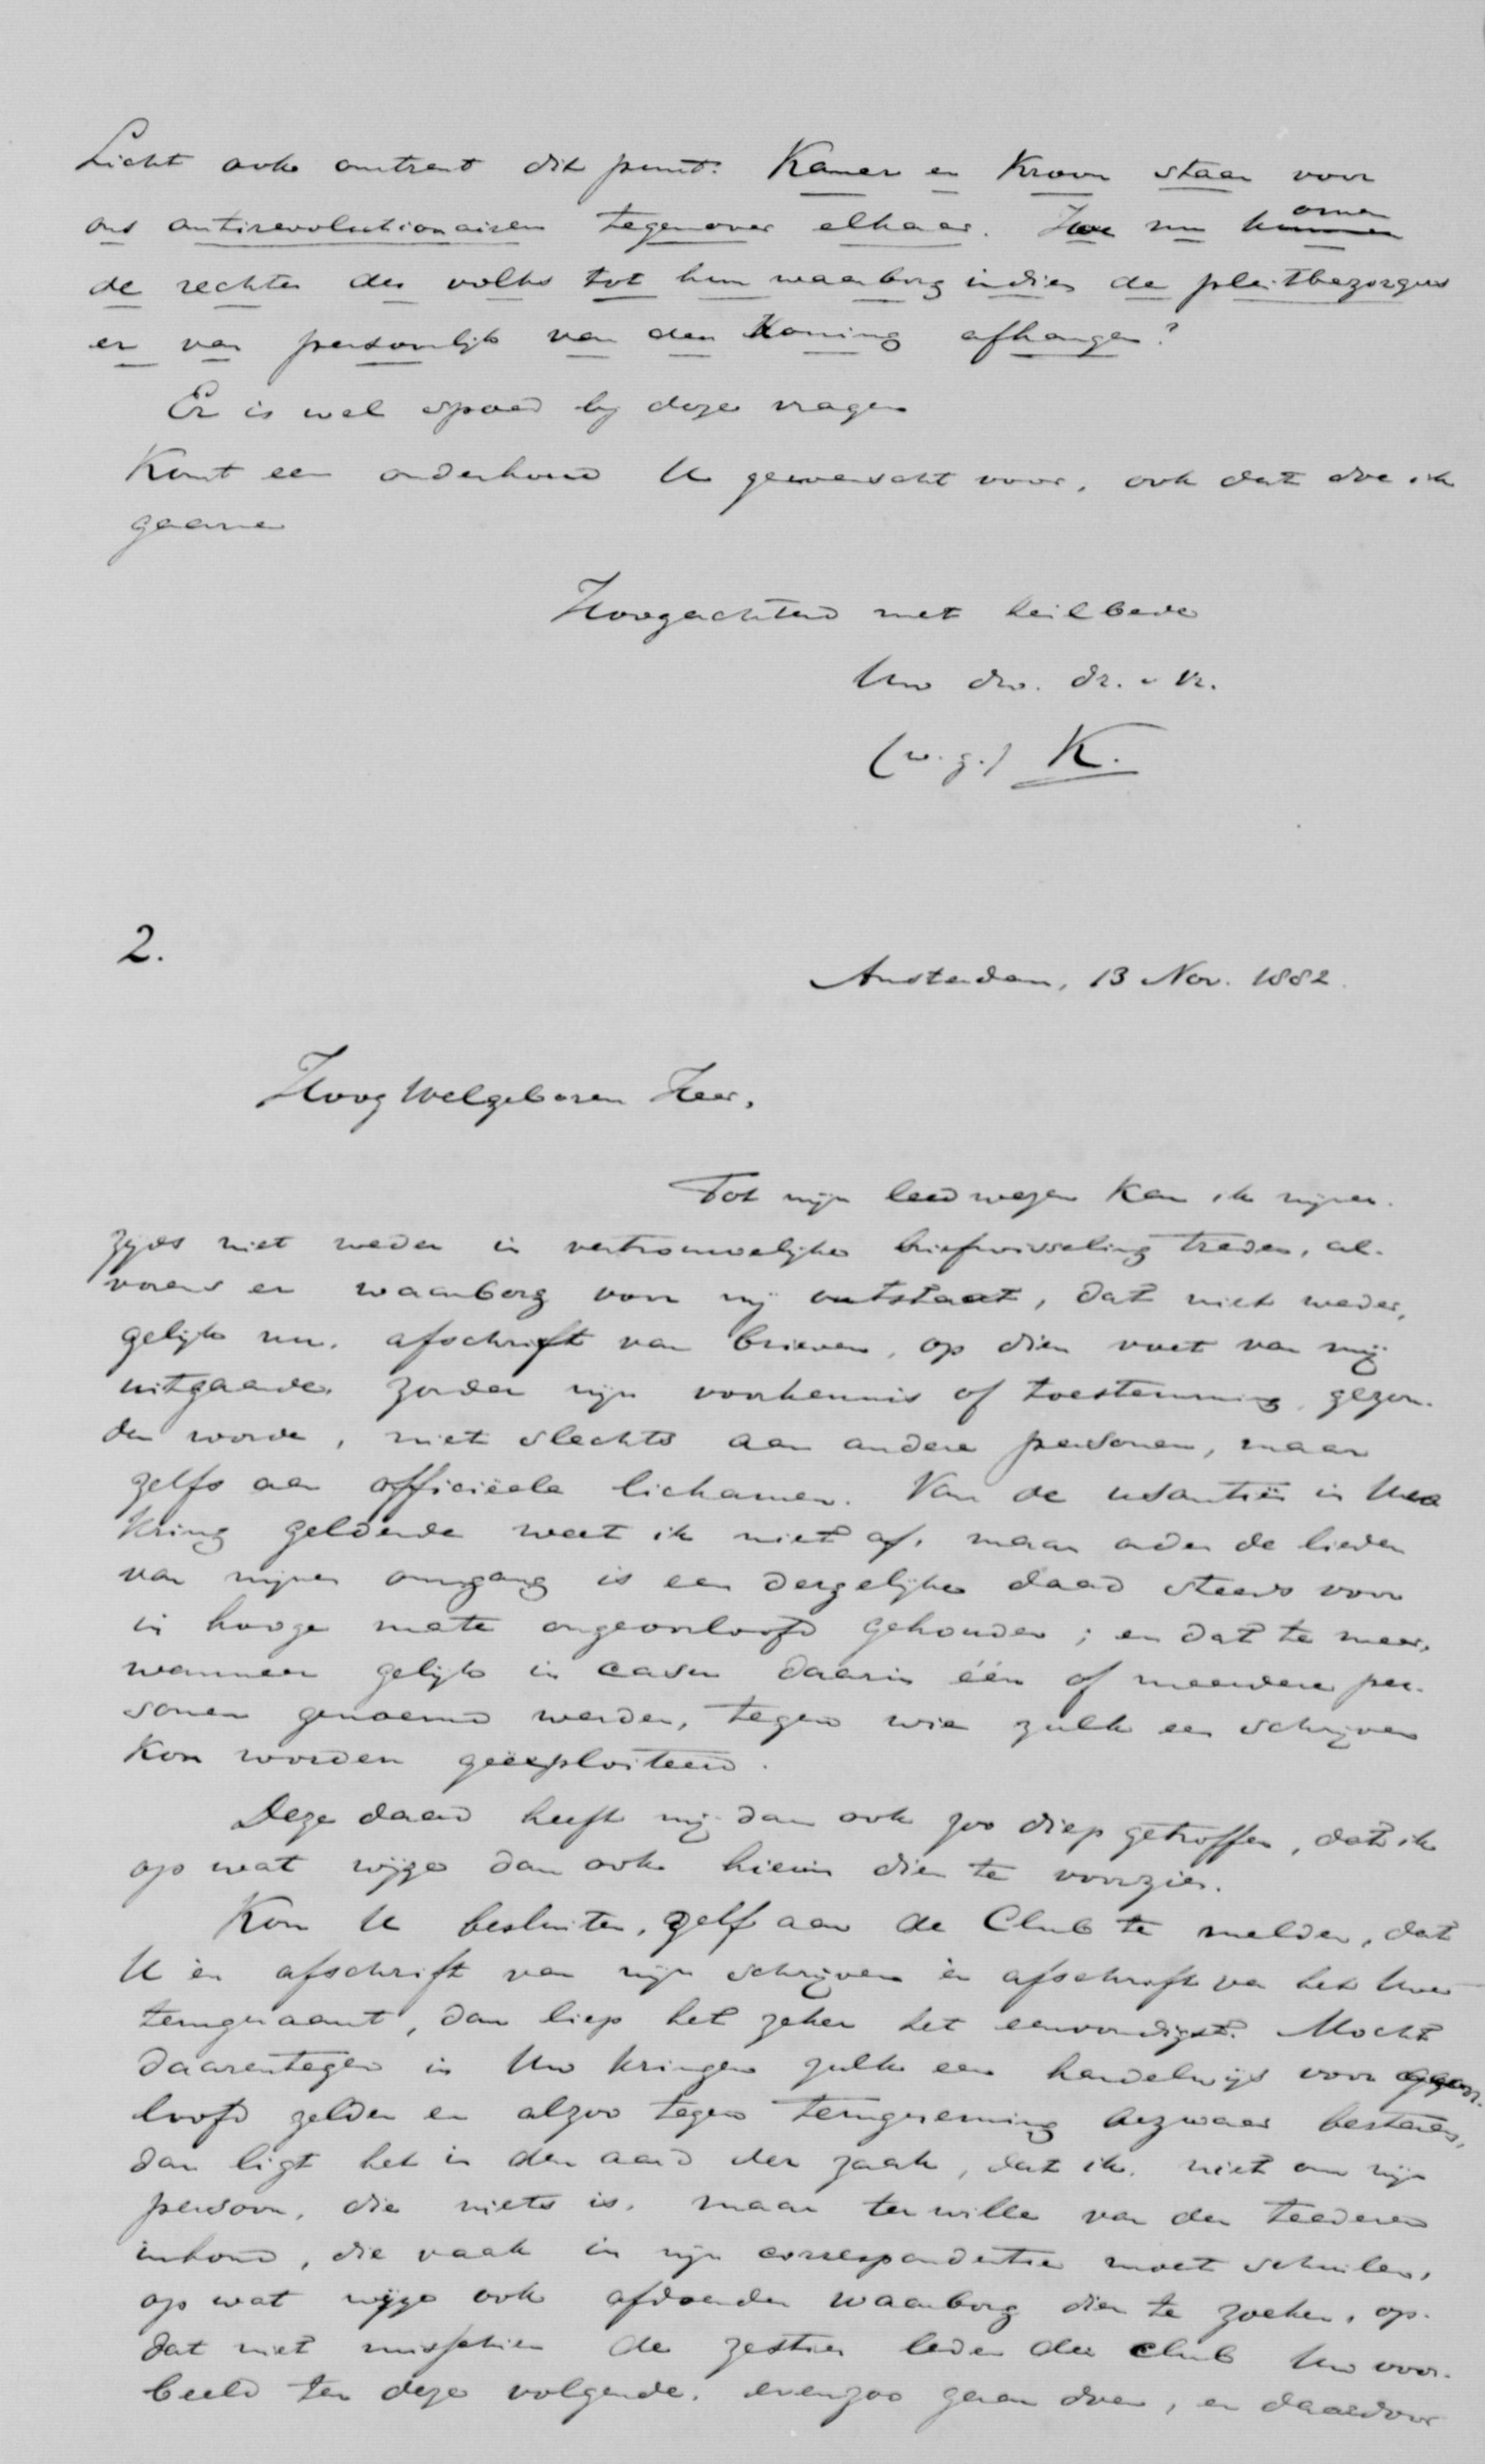 Licht ook omtrent dit punt. Kamer en Kroon staan voor
ons antirevolutionairen tegenover elkaar. Hoe nu komen
de rechten des volks tot hun waarborg indien de pleitbezorgers
er van persoonlijk van den Koning afhangen?
Er is wel spoed bij deze vragen
Komt een onderhoud U gewenscht voor, ook dat doe ik
gaarne
Hoogachtend met heilbede
Uw dw. dr. en vr.
(w.g.) K.
2.
Amsterdam, 13 Nov. 1882.
HoogWelgeboren Heer,
Tot mijn leedwezen kan ik mijner-
zijds niet weder in vertrouwelijke briefwisseling treden, al-
vorens er waarborg voor mij ontstaat, dat niet weder,
gelijk nu, afschrift van brieven, op dien voet van mij
uitgaande, zonder mijn voorkennis of toestemming, gezon-
den worde, niet slechts aan andere personen, maar
zelfs aan officieële lichamen. Van de usantiën in Uwe
Kring geldende weet ik niet af, maar onder de lieden
van mijnen omgang is een dergelijke daad steeds voor
in hooge mate ongeoorloofd gehouden; en dat te meer,
wanneer gelijk in casu daarin één of meerdere per-
sonen genoemd werden, tegen wie zulk een schrijven
kon worden geëxploiteerd.
Deze daad heeft mij dan ook zoo diep getroffen, dat ik
op wat wijze dan ook hierin dien te voorzien.
Kon U besluiten, zelf aan de Club te melden, dat
U èn afschrift van mijn schrijven èn afschrift van het Uwe
terugnaamt, dan liep het zeker het eenvoudigst. Mocht
daarentegen in Uw kringen zulk een handelwijs voor geoor-
loofd gelden en alzoo tegen terugneming bezwaar bestaan,
dan ligt het in den aard der zaak, dat ik, niet om mijn
persoon, die niets is, maar ter wille van den teederen
inhoud, die vaak in mijn correspondentie moet schuilen,
op wat wijze ook afdoenden waarborg dien te zoeken, op-
dat niet misschien de zestien leden der Club Uw voor-
beeld ten deze volgende, evenzoo gaan doen, en daardoor